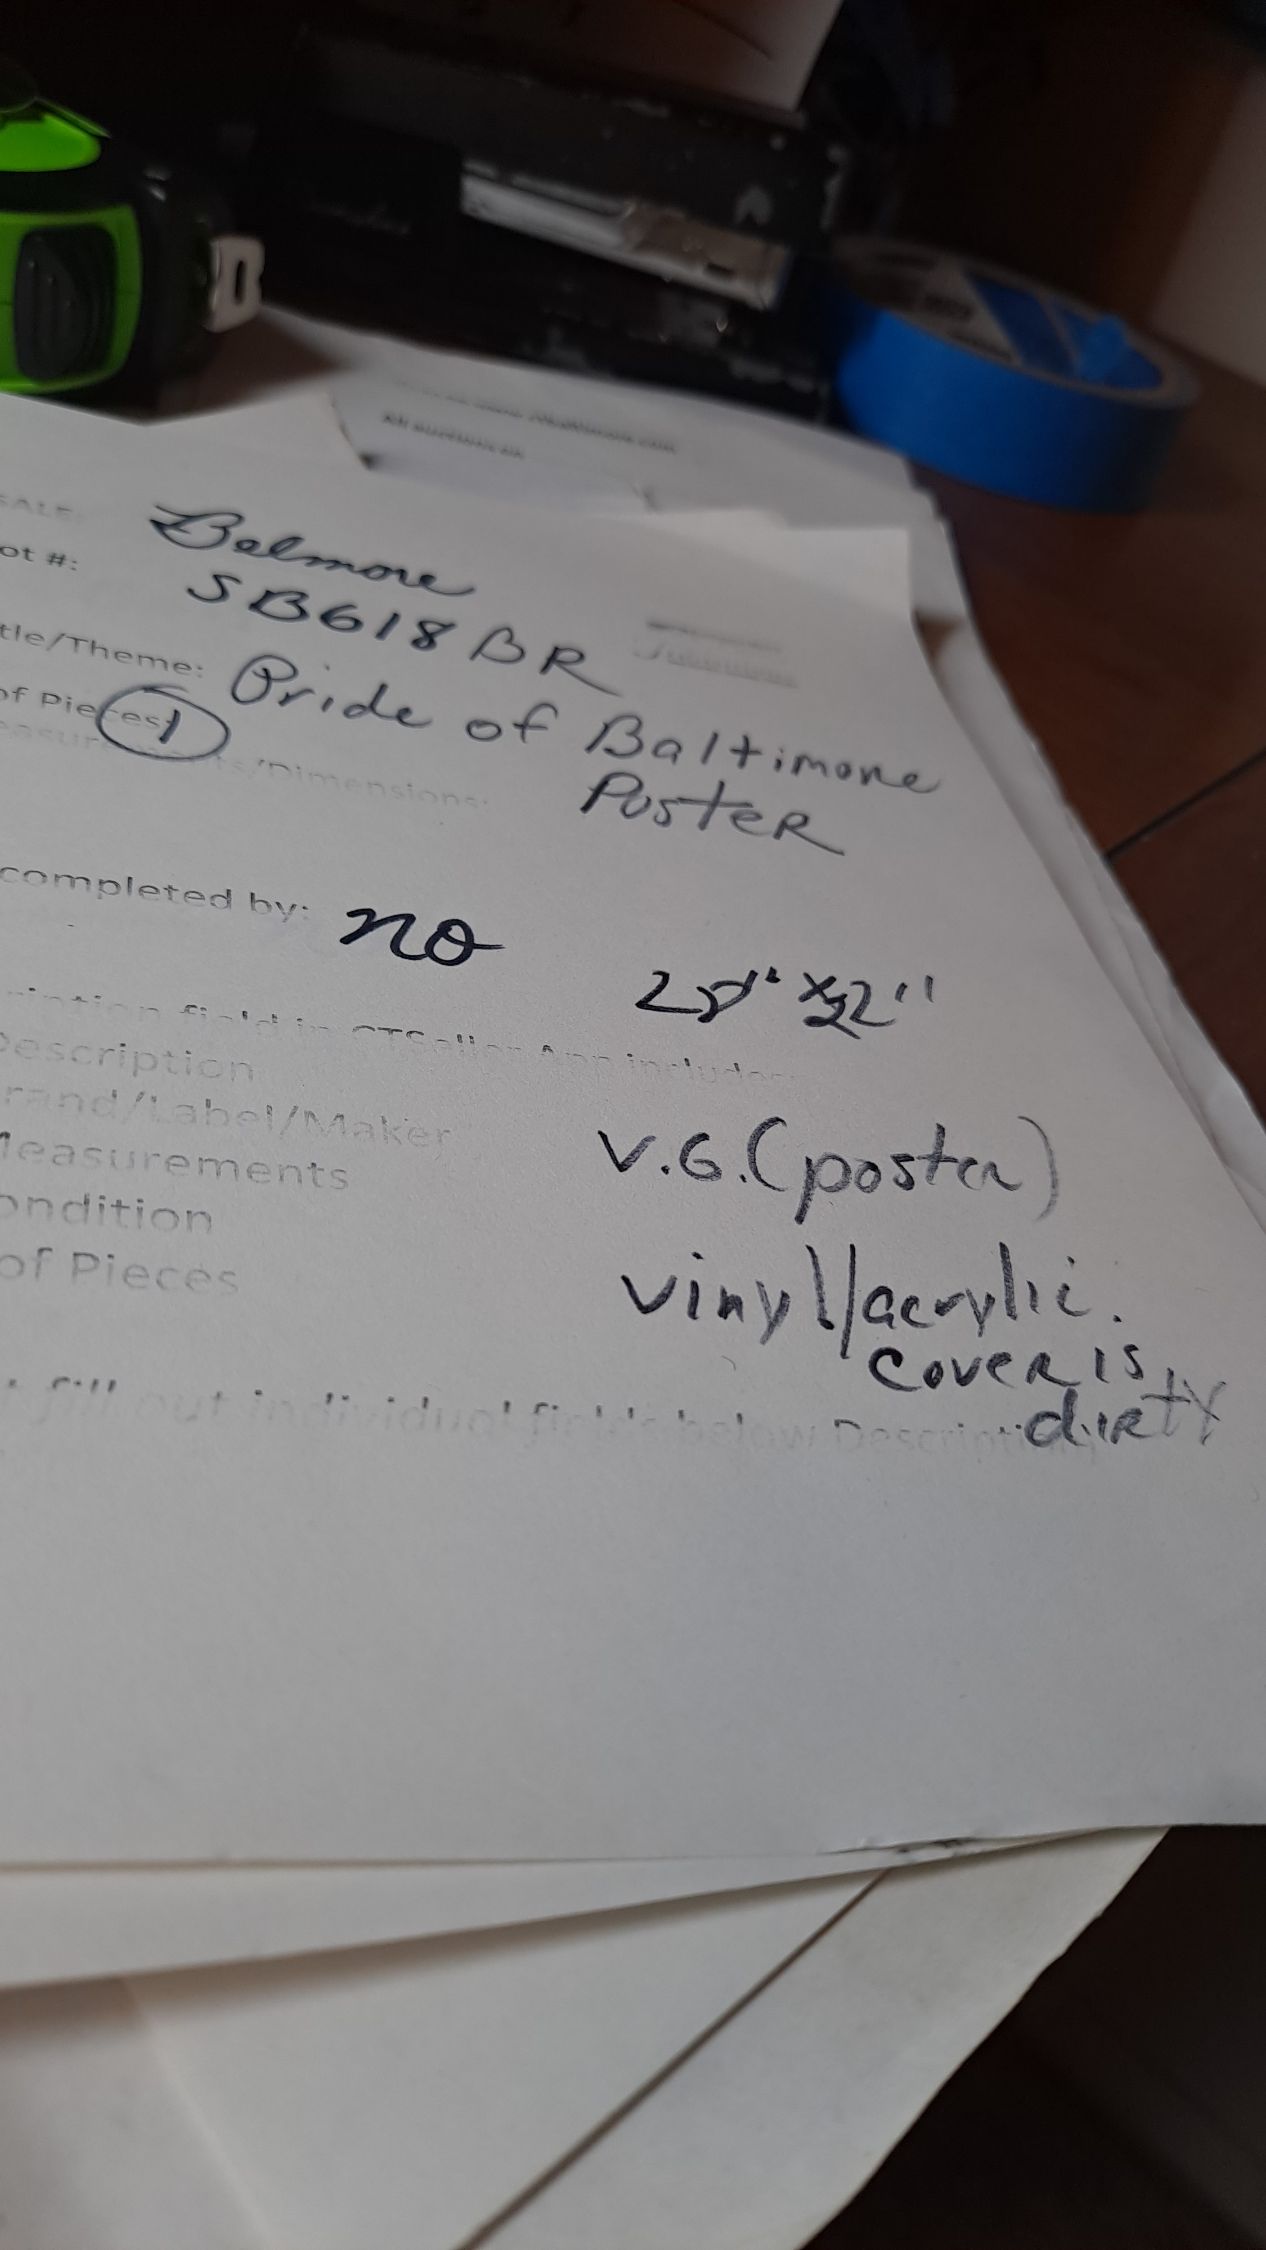 All auctions on
SALE: Belmore
ot #: SB618BR
tle/Theme: Pride of Baltimore
Poster
of Pieces: 1
easurements/Dimensions:
completed by: no
x 22"
ription field in CTSeller App includes
Description
rand/Label/Maker
Measurements
V.G. (poster)
ondition
of Pieces
vinyl/acrylic.
cover is
dirty
fill out individual fields below Description